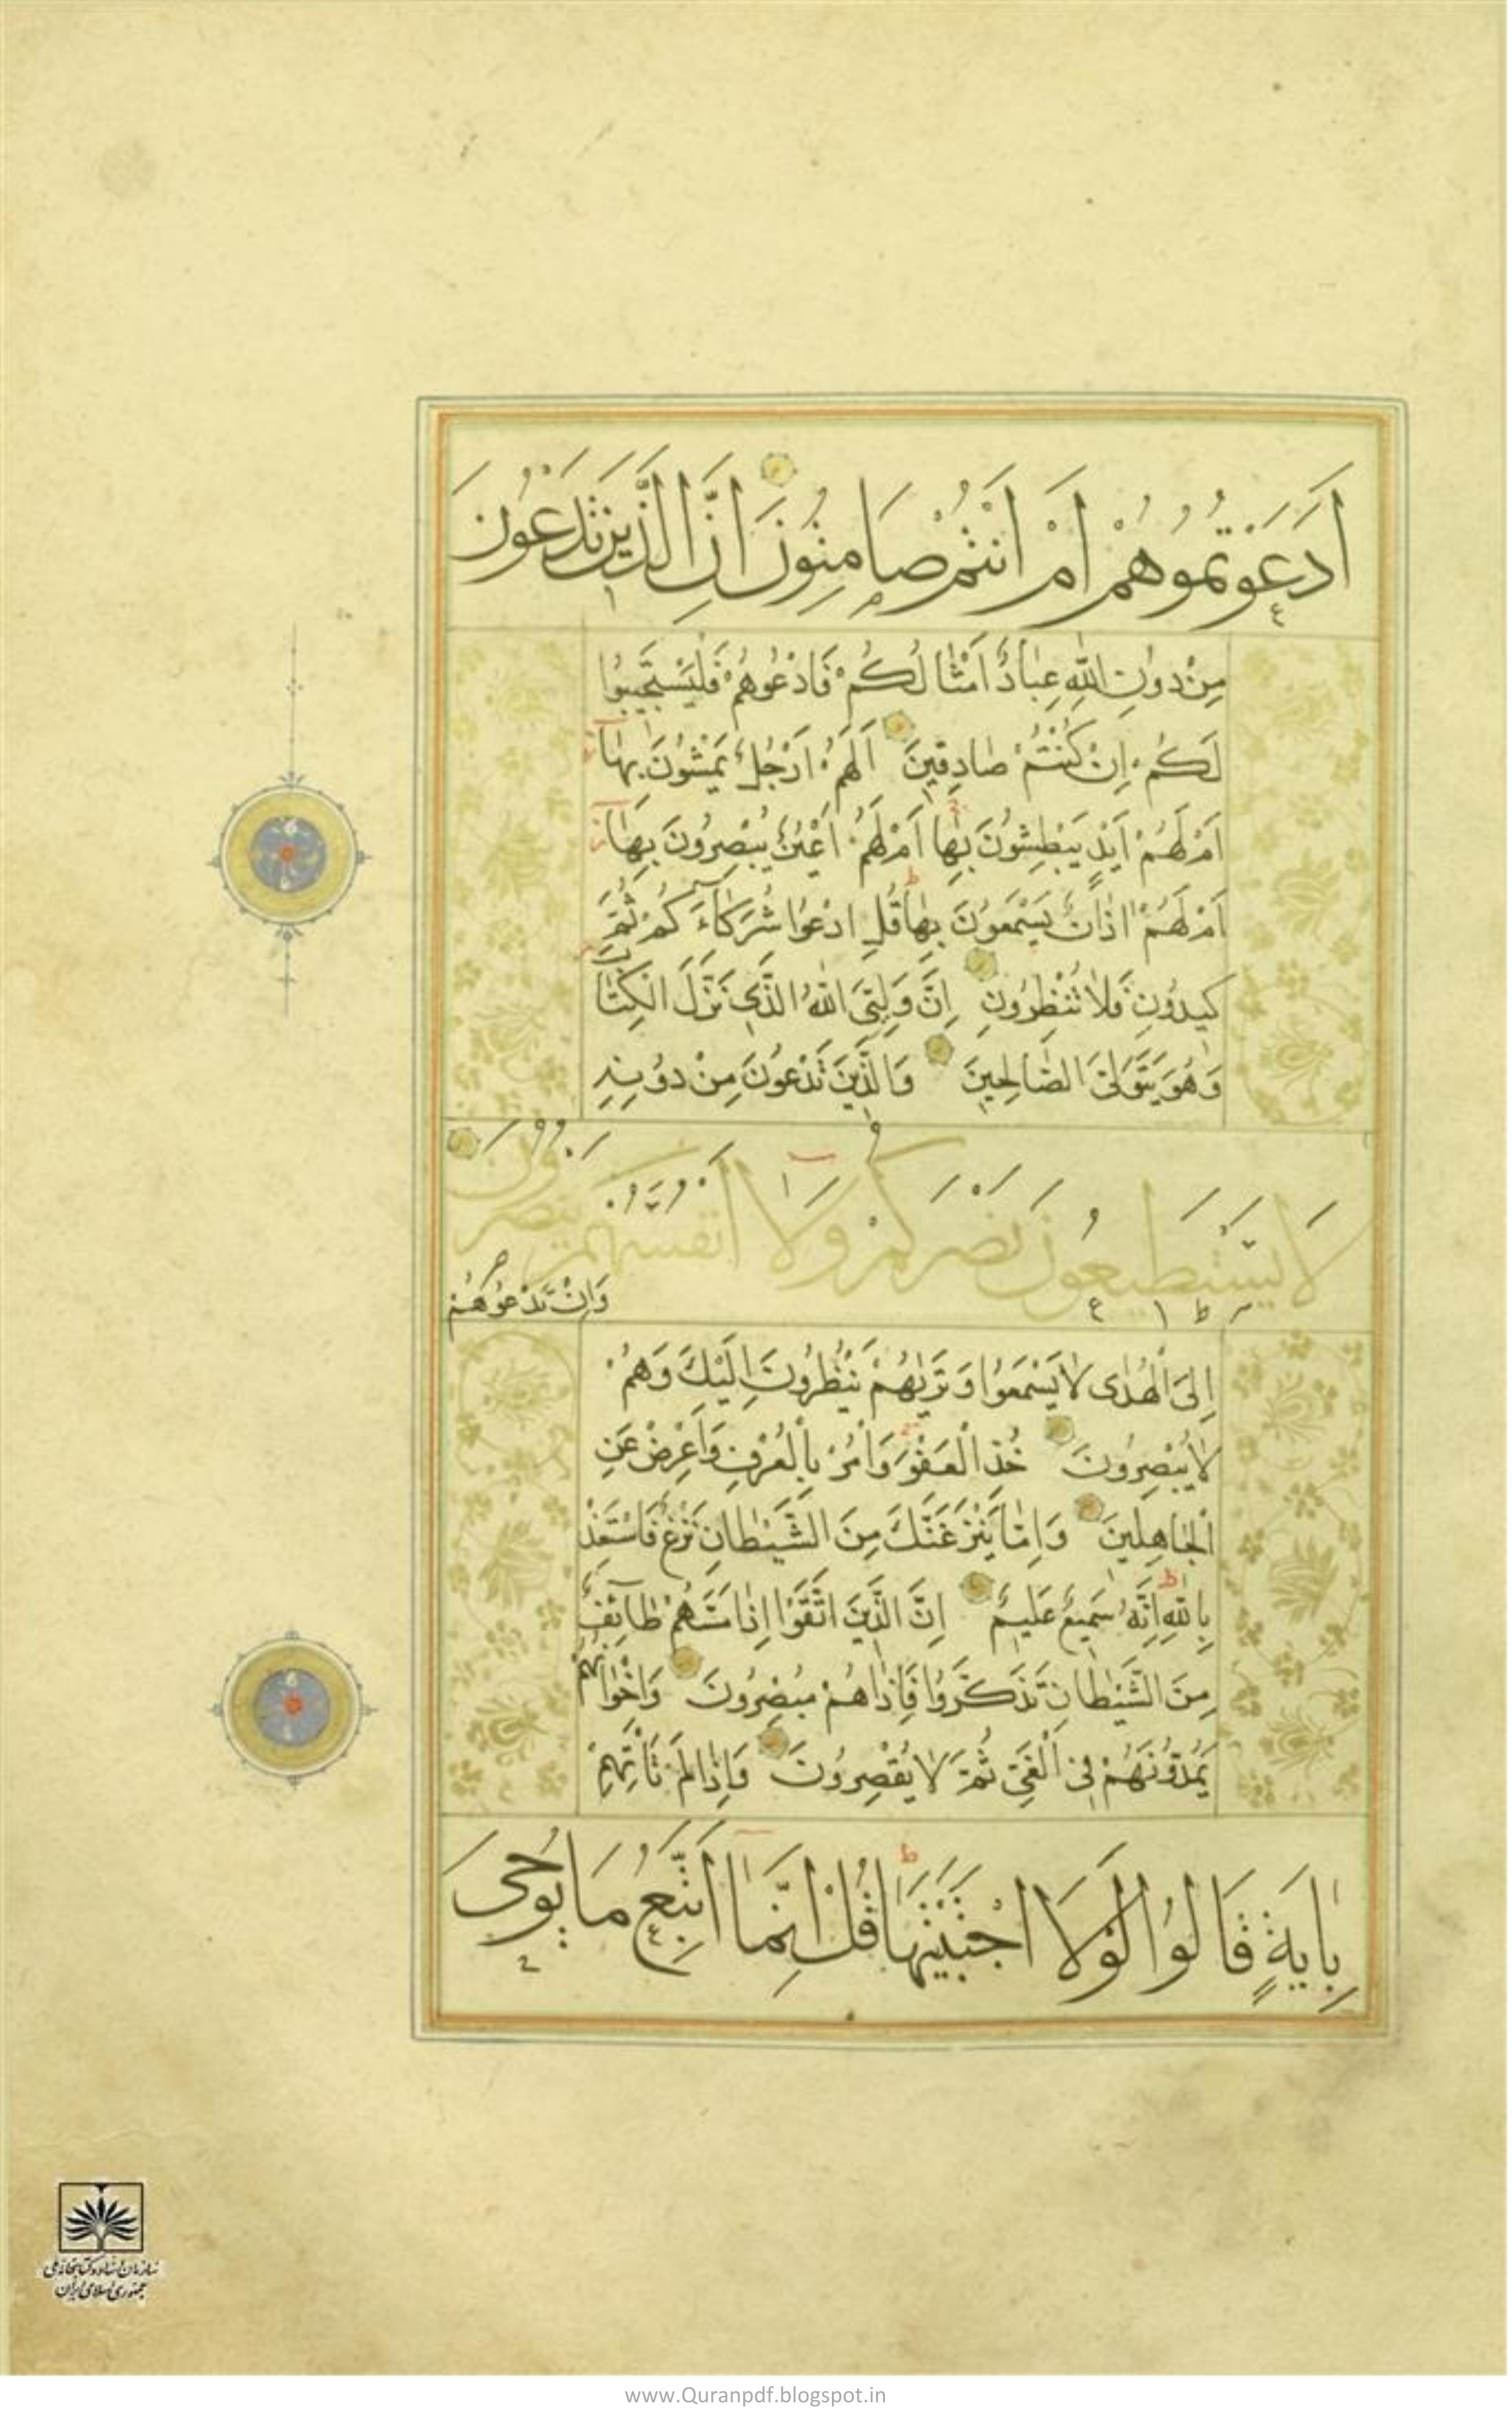 اَدَعَوْتُمُوهُمْ اَمْ اَنْتُمْ صَامِتُونَ اِنَّ الَّذِينَ تَدْعُونَ
مِنْ دُونِ اللّٰهِ عِبَادٌ اَمْثَالُكُمْ فَادْعُوهُمْ فَلْيَسْتَجِيبُوا
لَكُمْ اِنْ كُنْتُمْ صَادِقِينَ اَلَهُمْ اَرْجُلٌ يَمْشُونَ بِهَا
اَمْ لَهُمْ اَيْدٍ يَبْطِشُونَ بِهَا اَمْ لَهُمْ اَعْيُنٌ يُبْصِرُونَ بِهَا
اَمْ لَهُمْ اٰذَانٌ يَسْمَعُونَ بِهَا قُلِ ادْعُوا شُرَكَآءَكُمْ ثُمَّ
كِيدُونِ فَلَا تُنْظِرُونِ اِنَّ وَلِيِّيَ اللّٰهُ الَّذِي نَزَّلَ الْكِتَابَ
وَهُوَ يَتَوَلَّى الصَّالِحِينَ وَالَّذِينَ تَدْعُونَ مِنْ دُونِهِ
لَا يَسْتَطِيعُونَ نَصْرَكُمْ وَلَا اَنْفُسَهُمْ يَنْصُرُونَ
وَاِنْ تَدْعُوهُمْ
اِلَى الْهُدٰى لَا يَسْمَعُوا وَتَرٰيهُمْ يَنْظُرُونَ اِلَيْكَ وَهُمْ
لَا يُبْصِرُونَ خُذِ الْعَفْوَ وَأْمُرْ بِالْعُرْفِ وَاَعْرِضْ عَنِ
الْجَاهِلِينَ وَاِمَّا يَنْزَغَنَّكَ مِنَ الشَّيْطَانِ نَزْغٌ فَاسْتَعِذْ
بِاللّٰهِ اِنَّهُ سَمِيعٌ عَلِيمٌ اِنَّ الَّذِينَ اتَّقَوْا اِذَا مَسَّهُمْ طَآئِفٌ
مِنَ الشَّيْطَانِ تَذَكَّرُوا فَاِذَا هُمْ مُبْصِرُونَ وَاِخْوَانُهُمْ
يَمُدُّونَهُمْ فِي الْغَيِّ ثُمَّ لَا يُقْصِرُونَ وَاِذَا لَمْ تَأْتِهِمْ
بِاٰيَةٍ قَالُوا لَوْلَا اجْتَبَيْتَهَا قُلْ اِنَّمَا اَتَّبِعُ مَا يُوحٰى
سازمان اسناد و کتابخانه ملی
جمهوری اسلامی ایران
www.Quranpdf.blogspot.in